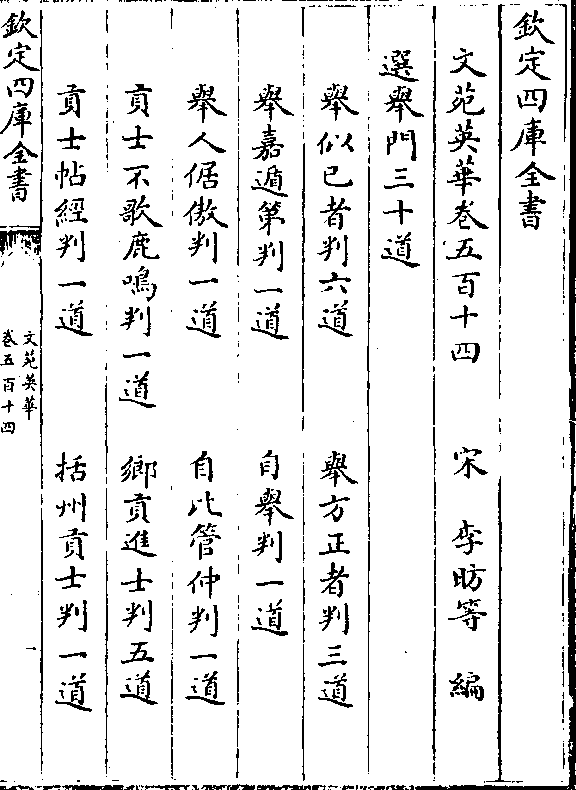 欽定四庫全書
文苑英華卷五百十四　宋　李昉等　編
選舉門三十道
舉似已者判六道　舉方正者判三道
舉嘉遁第判一道　自舉判一道
舉人倨傲判一道　自比管仲判一道
貢士不歌鹿鳴判一道　鄉貢進士判五道
貢士帖經判一道　括州貢士判一道
欽定四庫全書
文苑英華
卷五百十四
一